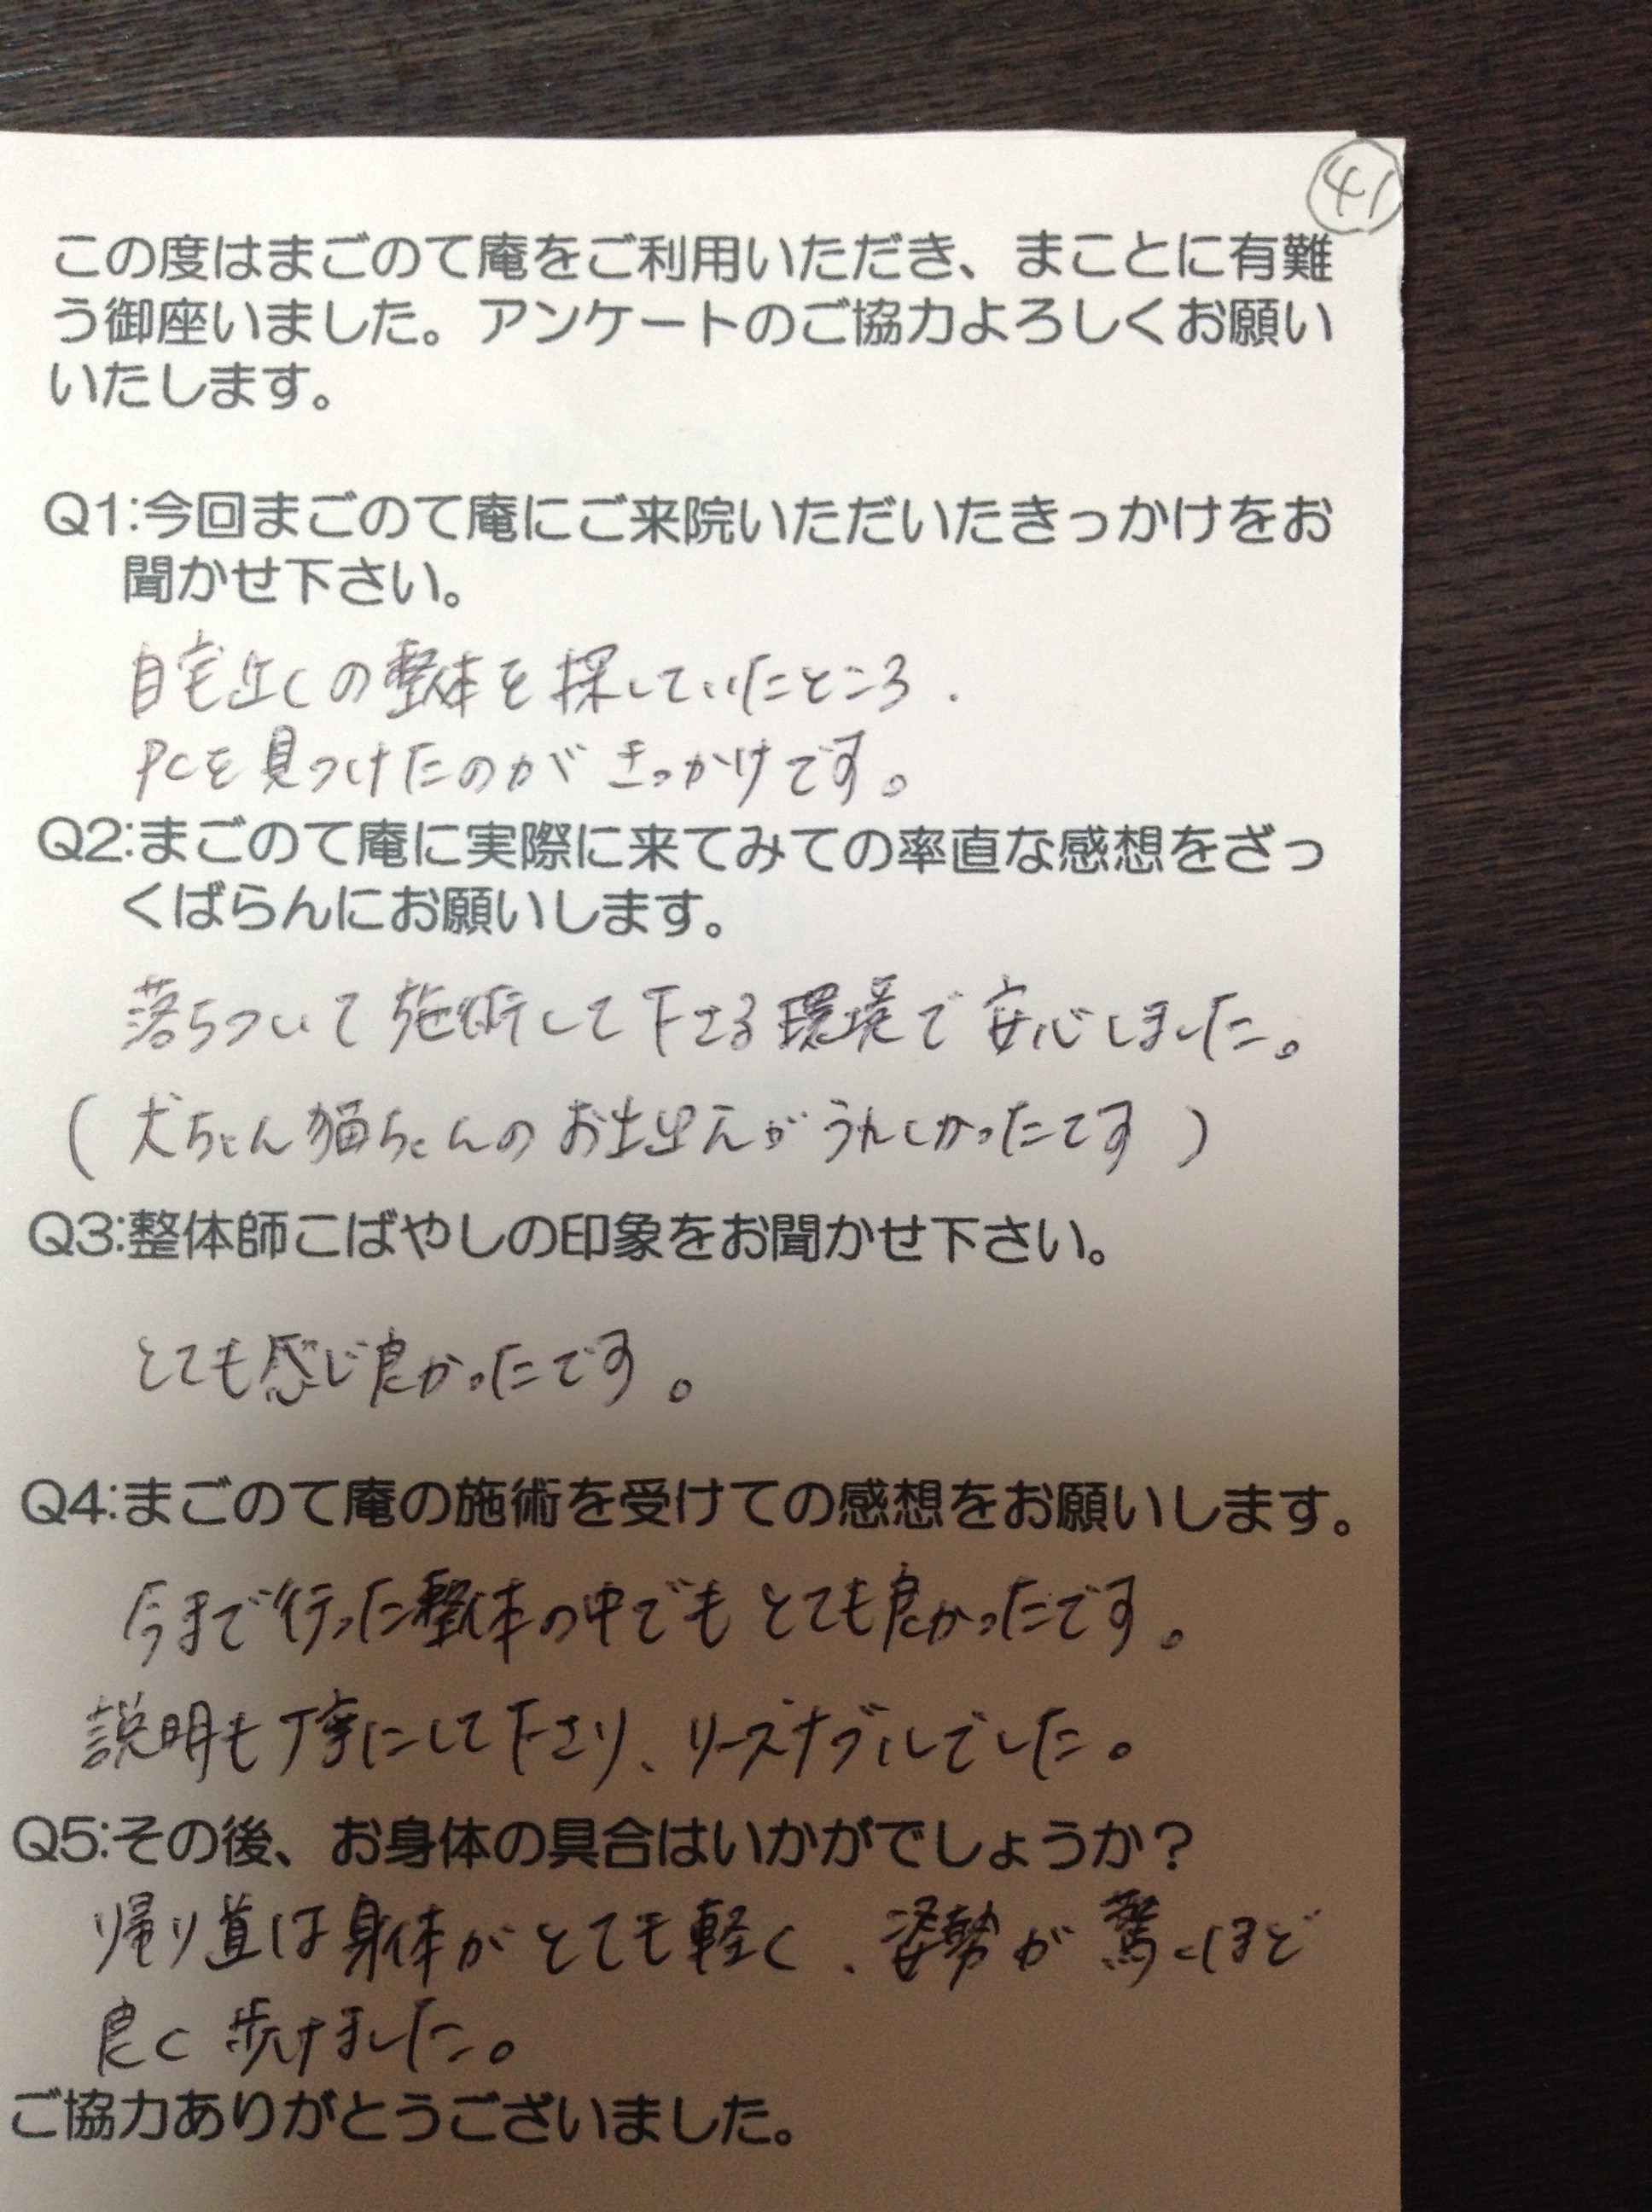 41
この度はまごのて庵をご利用いただき、まことに有難
う御座いました。アンケートのご協力よろしくお願い
いたします。
Q1:今回まごのて庵にご来院いただいたきっかけをお
聞かせ下さい。
自宅近くの整体を探していたところ、
PCを見つけたのがきっかけです。
Q2:まごのて庵に実際に来てみての率直な感想をざっ
くばらんにお願いします。
落ちついて施術して下さる環境で安心しました。
(犬ちゃん猫ちゃんのお出迎えがうれしかったです)
Q3:整体師こばやしの印象をお聞かせ下さい。
とても感じ良かったです。
Q4:まごのて庵の施術を受けての感想をお願いします。
今まで行った整体の中でもとても良かったです。
説明も丁寧にして下さり、リーズナブルでした。
Q5:その後、お身体の具合はいかがでしょうか？
帰り道は身体がとても軽く、姿勢が驚くほど
良く歩けました。
ご協力ありがとうございました。